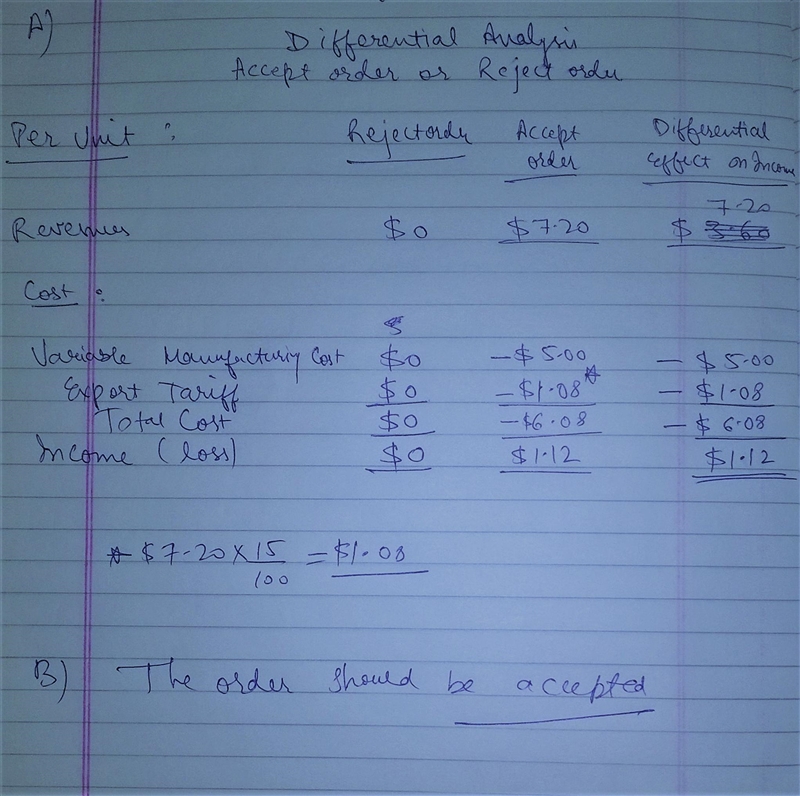 A)
Differential Analysis
Accept order or Reject order
Per Unit : Reject order Accept order Differential effect on Income
7.20
Revenues $0 $7.20 $ 3.60
Cost :
Variable Manufacturing Cost $0 -$5.00 -$5.00
Export Tariff $0 -$1.08* -$1.08
Total Cost $0 -$6.08 -$6.08
Income (loss) $0 $1.12 $1.12
* $7.20 X 15/100 = $1.08
B) The order should be accepted